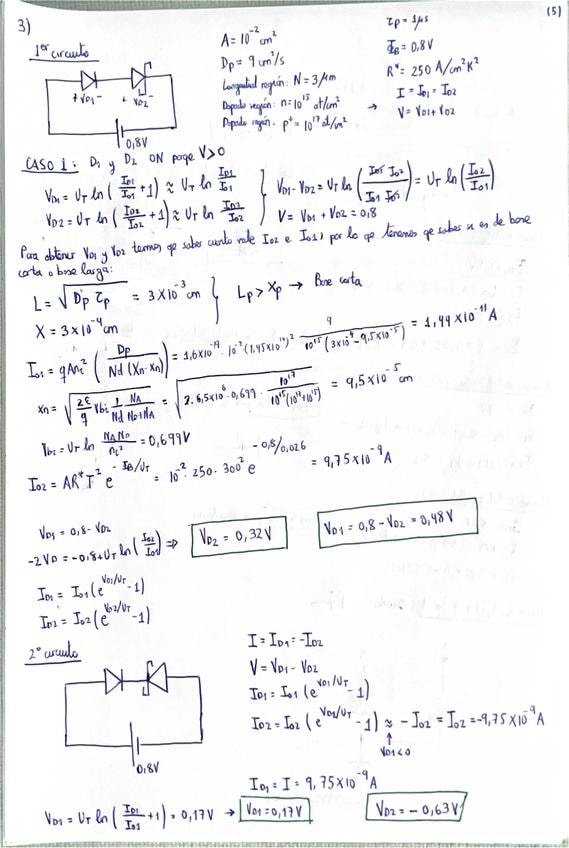 3)
(5)
1er circuito
+ VD1 -
+ VD2 -
0,8V
A = 10⁻² cm²
Dp = 9 cm²/s
Longitud región: N = 3 μm
Dopado región: n = 10¹⁵ at/cm²
Dopado región: p⁺ = 10¹⁷ at/cm²
τp = 1μs
ΦB = 0,8V
R* = 250 A/cm²K²
I = ID1 = ID2
→ V = VD1 + VD2
CASO 1: D1 y D2 ON porque V > 0
VD1 = UT ln (ID1/I01 + 1) ≈ UT ln ID1/I01
VD2 = UT ln (ID2/I02 + 1) ≈ UT ln ID2/I02
VD1 - VD2 = UT ln (ID1 I02 / I01 ID2) = UT ln (I02/I01)
V = VD1 + VD2 = 0,8
Para obtener VD1 y VD2 tenemos qe saber cuanto vale I02 e I01, por lo qe tenemos qe saber si es de base
corta o base larga:
L = √(Dp τp) = 3×10⁻³ cm
X = 3×10⁻⁴ cm
Lp > Xp → Base corta
I01 = qAni² (Dp / Nd (Xn - xn)) = 1,6×10⁻¹⁹ · 10⁻² (1,45×10¹⁰)² 9 / 10¹⁵ (3×10⁻⁴ - 9,5×10⁻⁵) = 1,44×10⁻¹¹ A
xn = √(2ε/q Vbi 1/Nd NA/ND+NA) = √(2 · 6,5×10⁶ · 0,699 · 10¹⁷ / 10¹⁵(10¹⁵+10¹⁷)) = 9,5×10⁻⁵ cm
Vbi = UT ln NA ND / ni² = 0,699V
I02 = AR*T² e^(-ΦB/UT) = 10⁻² · 250 · 300² e^(-0,8/0,026) = 9,75×10⁻⁹ A
VD1 = 0,8 - VD2
-2VD = -0,8 + UT ln (I02/I01) ⇒ VD2 = 0,32V
VD1 = 0,8 - VD2 = 0,48V
ID1 = I01 (e^(VD1/UT) - 1)
ID2 = I02 (e^(VD2/UT) - 1)
2º circuito
0,8V
I = ID1 = -ID2
V = VD1 - VD2
ID1 = I01 (e^(VD1/UT) - 1)
ID2 = I02 (e^(VD2/UT) - 1) ≈ -I02 = I02 = -9,75×10⁻⁹ A
↑
VD1 < 0
ID1 = I = 9,75×10⁻⁹ A
VD1 = UT ln (ID1/I01 + 1) = 0,17V → VD1 = 0,17V
VD2 = -0,63V